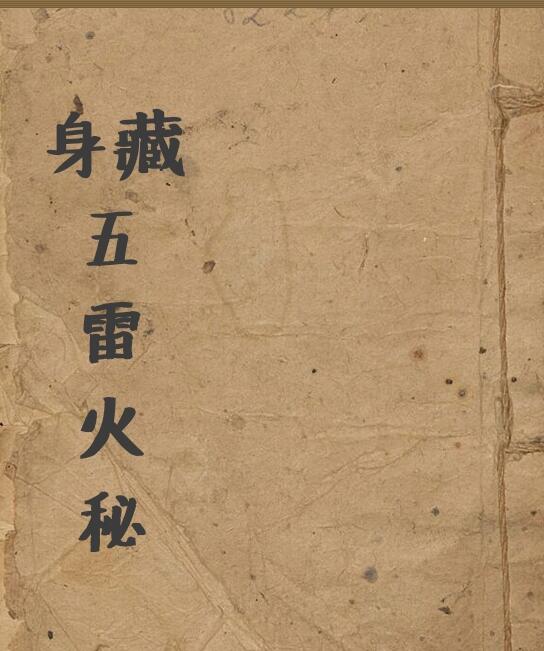 藏身
五雷火秘